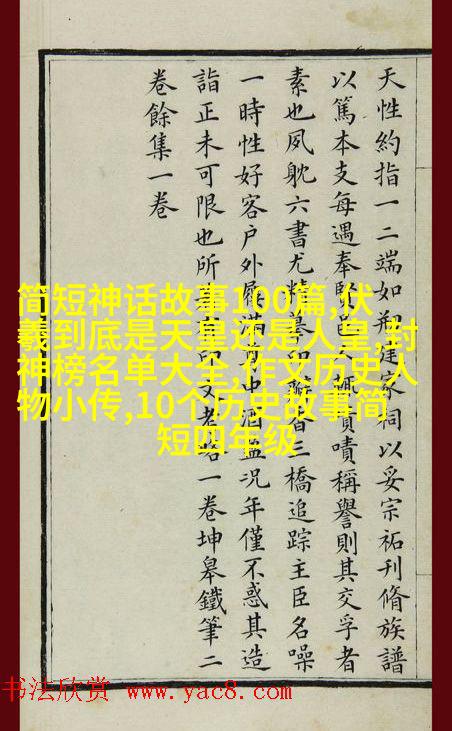 天性約指一二端如剏建家祠以妥宗祏刊脩族譜
以篤本支每遇奉賢邑人輒嘖嘖稱譽則其交孚者
素也夙躭六書尤精摹印三橋追踪主臣名噪
一時性好客戶外屨滿中酒況年僅不惑其造
詣正未可限也所印文考一卷坤皋鐵筆二
卷餘集一卷
简短神话故事100篇,伏
羲到底是天皇还是人皇,封
神榜名单大全,作文历史人
物小传,10个历史故事简
短四年级
书法欣赏 www.yac8.com